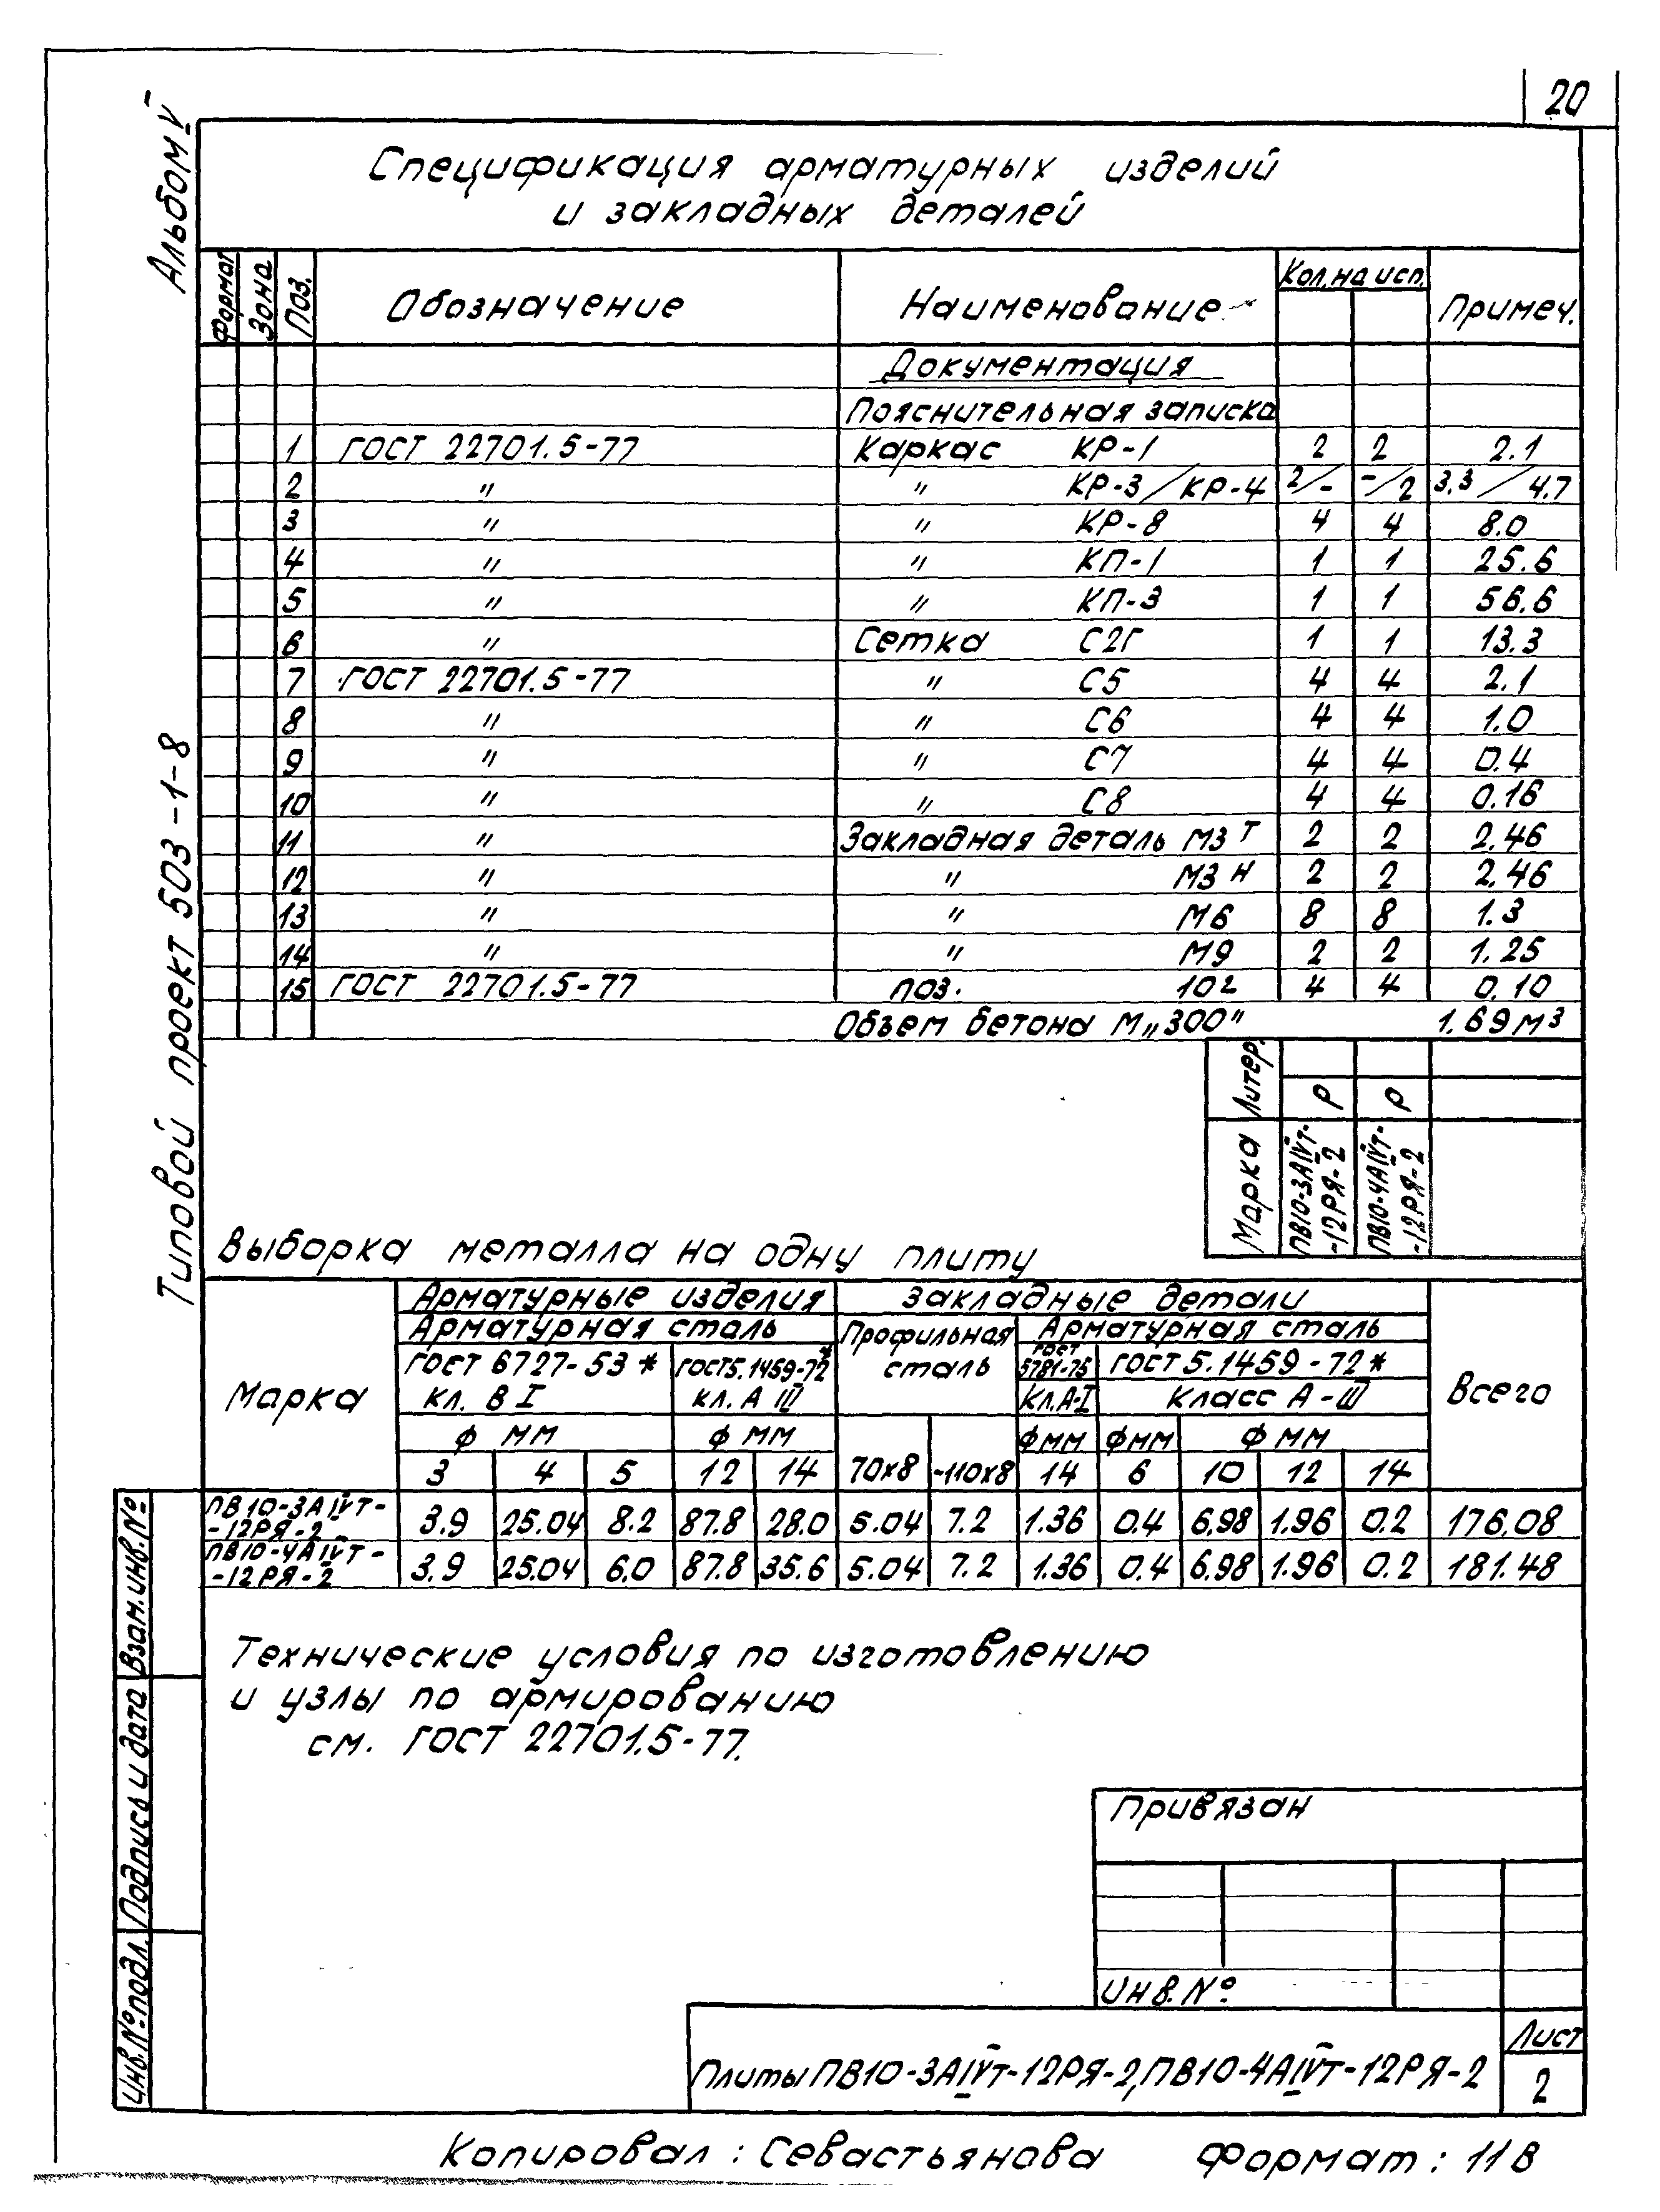 20
Альбом V
Типовой проект 503-1-8
Спецификация арматурных изделий
и закладных деталей
Формат Зона Поз. Обозначение Наименование Кол. на исп. Примеч.
Документация
Пояснительная записка
1 ГОСТ 22701.5-77 Каркас КР-1 2 2 2.1
2 " " КР-3/КР-4 2/- -/2 3.3/4.7
3 " " КР-8 4 4 8.0
4 " " КП-1 1 1 25.6
5 " " КП-3 1 1 56.6
6 " Сетка С2Г 1 1 13.3
7 ГОСТ 22701.5-77 " С5 4 4 2.1
8 " " С6 4 4 1.0
9 " " С7 4 4 0.4
10 " " С8 4 4 0.16
11 " Закладная деталь М3 Т 2 2 2.46
12 " " М3 Н 2 2 2.46
13 " " М6 8 8 1.3
14 " " М9 2 2 1.25
15 ГОСТ 22701.5-77 поз. 102 4 4 0.10
Объем бетона М„300" 1.69 м³
Литер. Р Р
Марка ПВ10-3АIVт-12РЯ-2 ПВ10-4АIVт-12РЯ-2
Выборка металла на одну плиту
Марка Арматурные изделия Закладные детали Всего
Арматурная сталь Профильная сталь Арматурная сталь
ГОСТ 6727-53* ГОСТ 5.1459-72* ГОСТ 5781-75 ГОСТ 5.1459-72*
кл. В I кл. А III Кл. А-I Класс А-III
Ф мм Ф мм Ф мм Ф мм Ф мм
3 4 5 12 14 70х8 -110х8 14 6 10 12 14
ПВ10-3АIVТ-
-12РЯ-2 3.9 25.04 8.2 87.8 28.0 5.04 7.2 1.36 0.4 6.98 1.96 0.2 176.08
ПВ10-4АIVТ-
-12РЯ-2 3.9 25.04 6.0 87.8 35.6 5.04 7.2 1.36 0.4 6.98 1.96 0.2 181.48
Технические условия по изготовлению
и узлы по армированию
см. ГОСТ 22701.5-77.
Взам. инв. №
Подпись и дата
Инв. № подл.
Привязан
Инв. №
Плиты ПВ10-3АIVт-12РЯ-2, ПВ10-4АIVт-12РЯ-2
Лист
2
Копировал: Севастьянова Формат: 11В